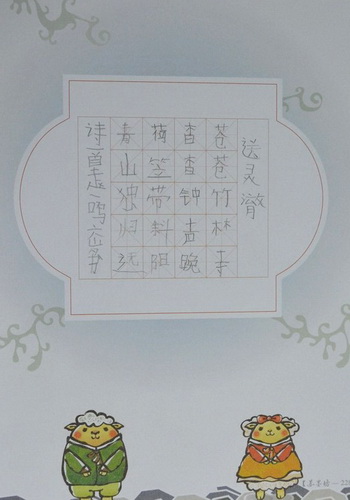 送灵澈
苍苍竹林寺
杳杳钟声晚
荷笠带斜阳
青山独归远
诗一首